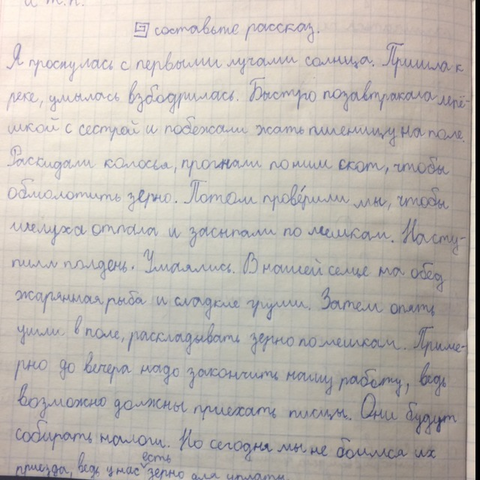 и т.п.
5 составьте рассказ.
Я проснулась с первыми лучами солнца. Пришла к
реке, умылась взбодрилась. Быстро позавтракала лепё-
шкой с сестрой и побежали жать пшеницу на поле.
Раскидали колосья, прогнали по ним скот, чтобы
обмолотить зерно. Потом проверили мы, чтобы
шелуха отпала и засыпали по мешкам. Насту-
пил полдень. Умаялись. В нашей семье на обед
жаренная рыба и сладкие груши. Затем опять
ушли в поле, раскладывать зерно по мешкам. Приме-
рно до вечера надо закончить нашу работу, ведь
возможно должны приехать писцы. Они будут
собирать налоги. Но сегодня мы не боимся их
приезда, ведь у нас есть зерно для уплаты